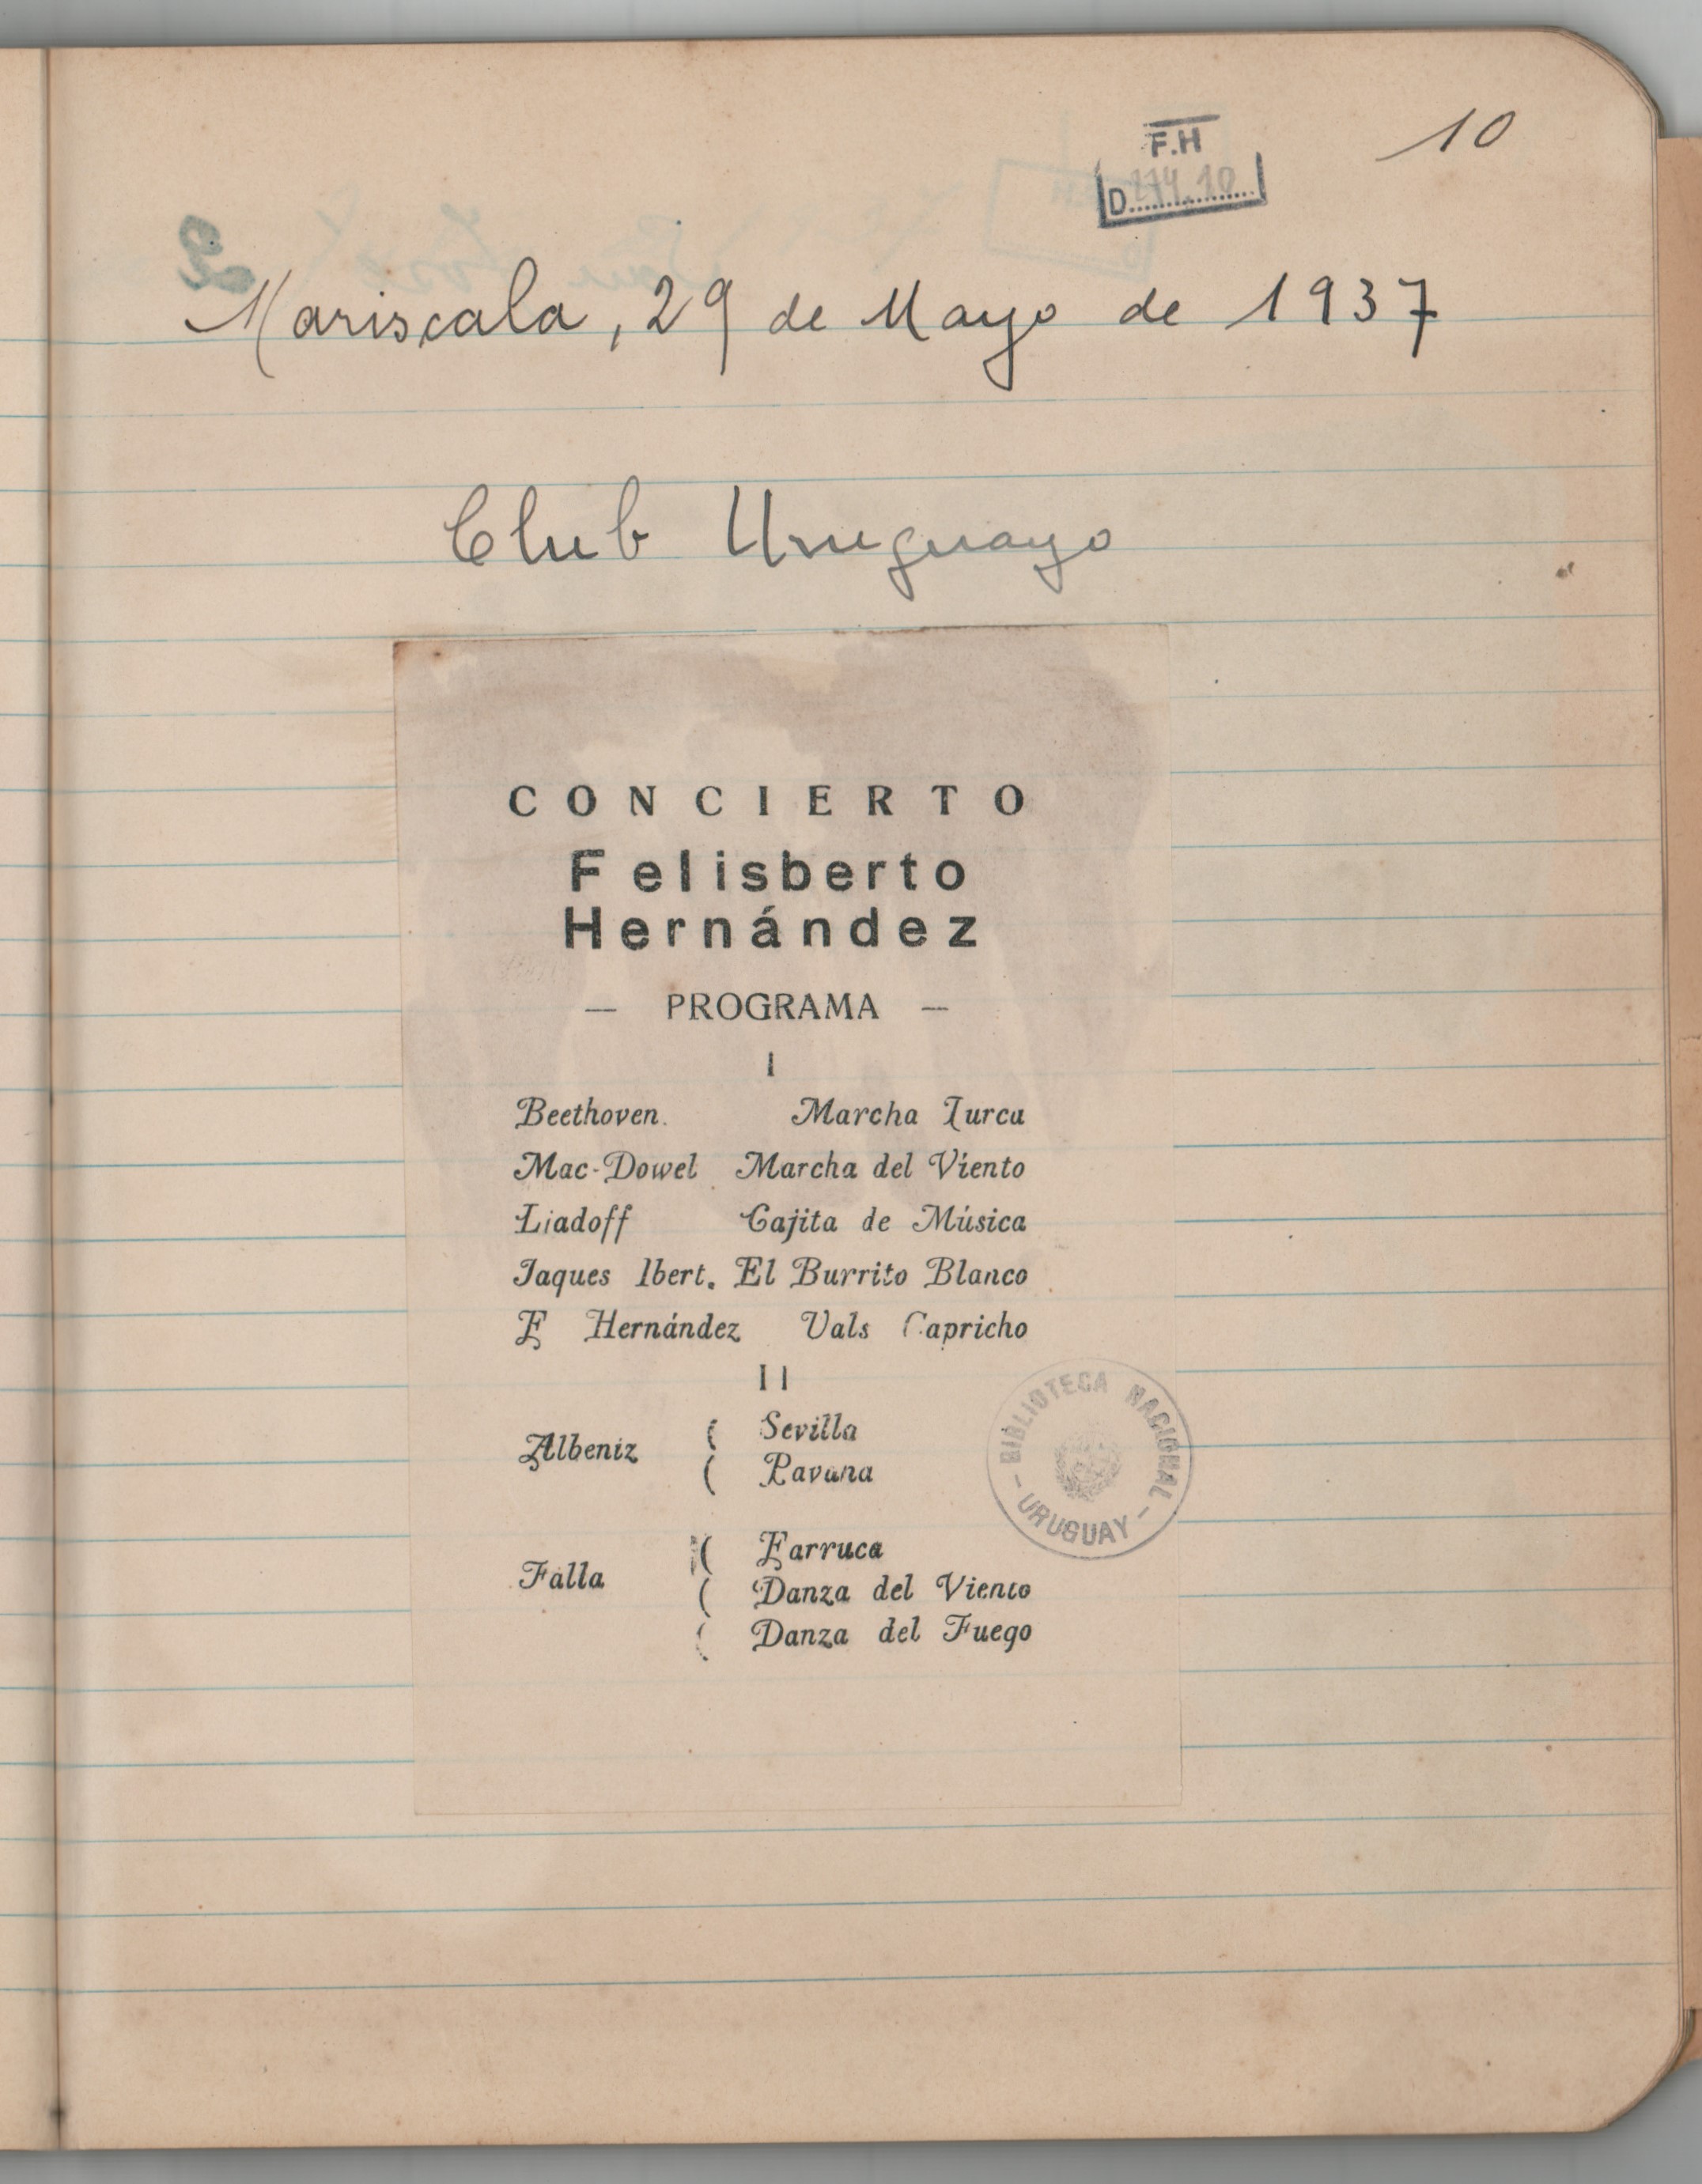 10
F.H
D 274.10
Mariscala, 29 de Mayo de 1937
Club Uruguayo
CONCIERTO
Felisberto
Hernández
— PROGRAMA —
I
Beethoven. Marcha Turca
Mac-Dowel Marcha del Viento
Liadoff Cajita de Música
Jaques Ibert. El Burrito Blanco
F Hernández Vals Capricho
II
Albeniz ( Sevilla
( Pavana
Falla ( Farruca
( Danza del Viento
( Danza del Fuego
BIBLIOTECA NACIONAL
- URUGUAY -